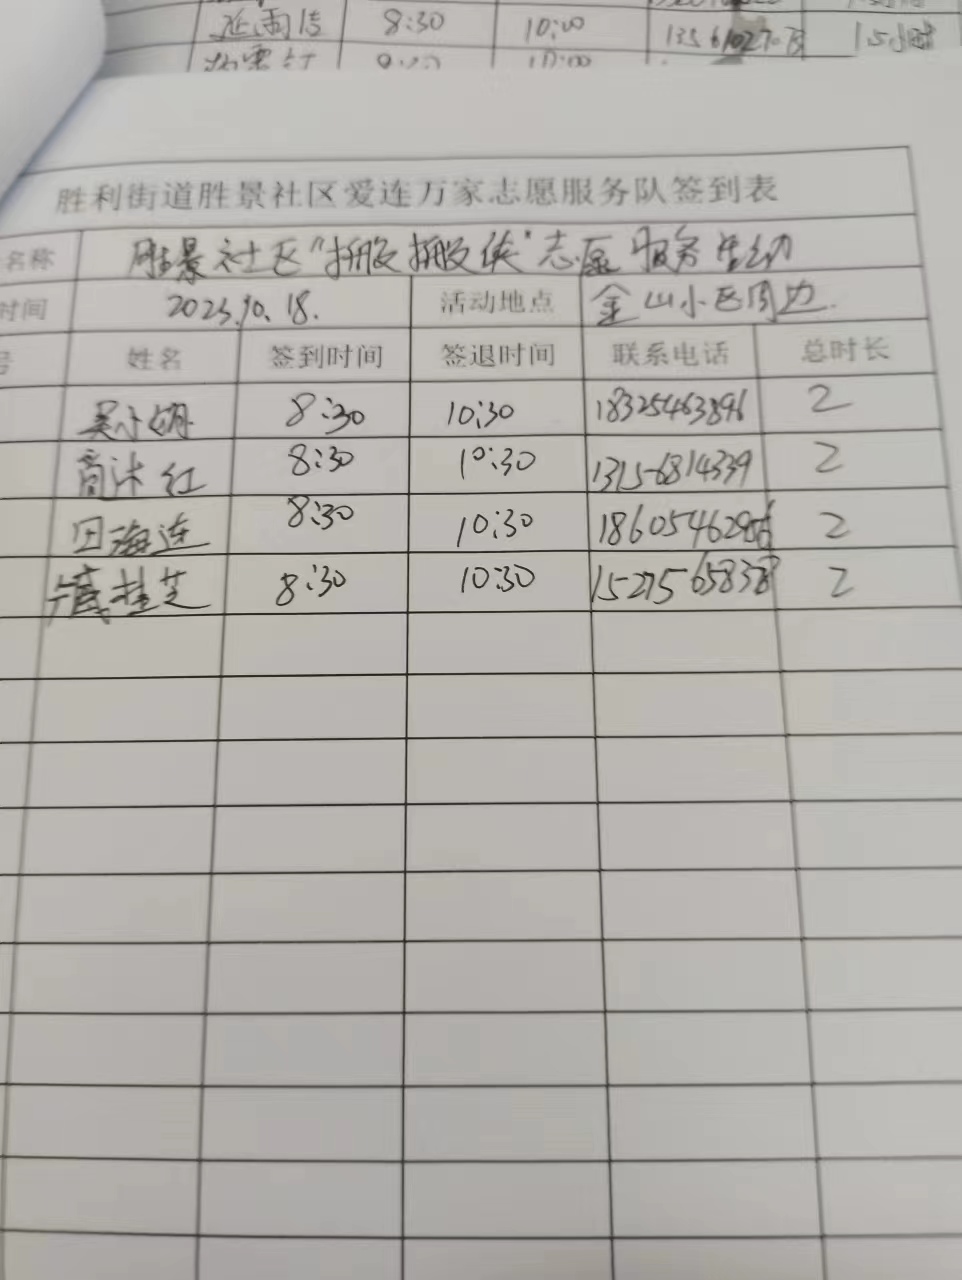 延雨洁 8:30 10:00 1.5小时
10:00
胜利街道胜景社区爱连万家志愿服务队签到表
名称 胜景社区“搬搬侠”志愿服务活动
时间 2023.10.18. 活动地点 金山小区周边
号 姓名 签到时间 签退时间 联系电话 总时长
吴小娟 8:30 10:30 18325463896 2
商沐红 8:30 10:30 13156814339 2
田海连 8:30 10:30 2
臧桂芝 8:30 10:30 15275658378 2